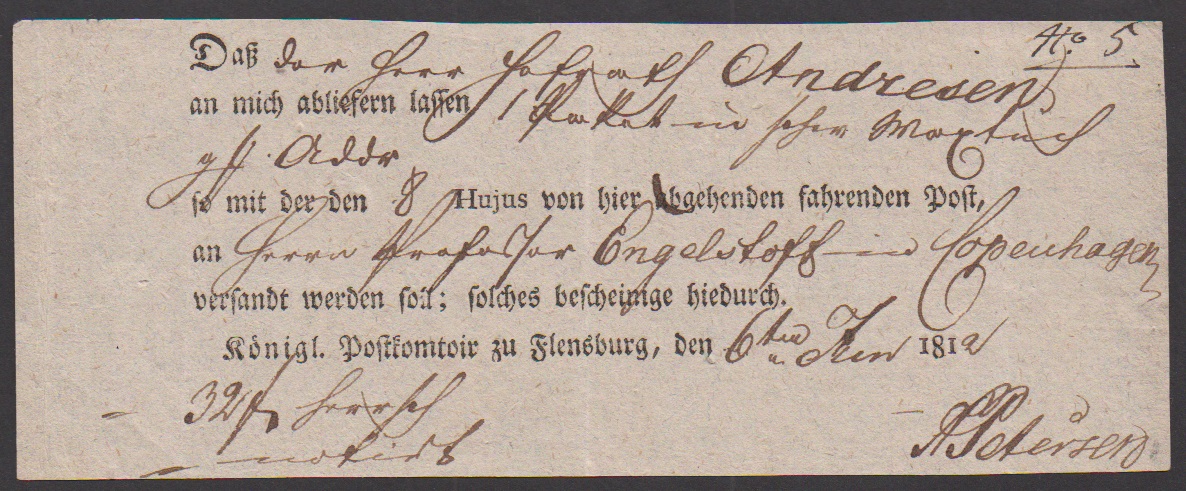 No 5.
Daß der Herr Hofrath Andresen
an mich abliefern lassen 1 Paket in schw Waxtuch
Addr
so mit der den 8 Hujus von hier abgehenden fahrenden Post,
an Herrn Professor Engelstoft in Copenhagen
versandt werden soll; solches bescheinige hiedurch.
Königl. Postkomtoir zu Flensburg, den 6ten Jun 1812
32
notirt
Petersen